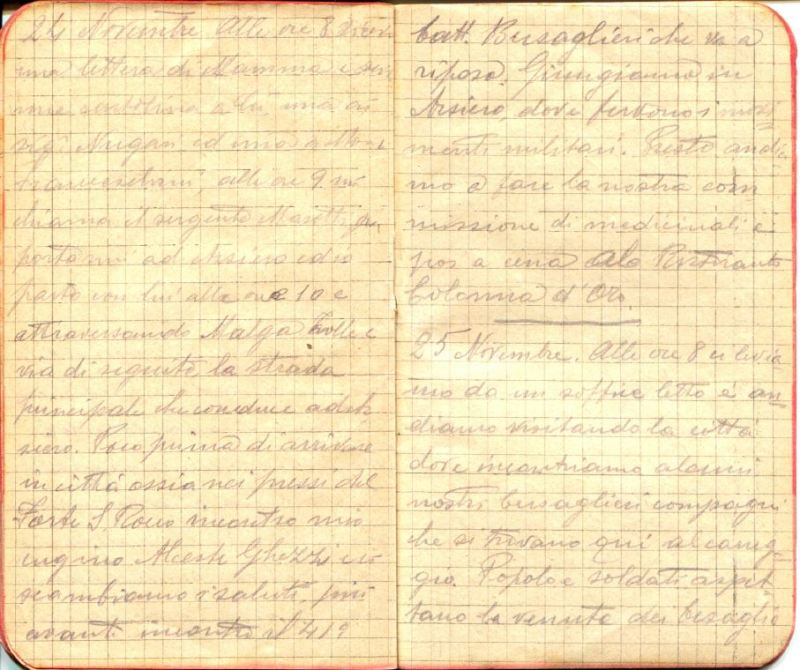 24 Novembre Alle ore 8 ricevo
una lettera di Mamma e
una cartolina
ed uno
alle ore 9 mi
chiama il sergente Masetti per
portarmi ad Arsiero ed io
parto con lui alle ore 10 e
attraversando Malga
via di seguito la strada
principale che conduce ad Ar
siero. Poco prima di arrivare
in città ossia nei pressi del
Forte S. Rocco incontro mio
cugino Alceste Ghezzi e ci
scambiamo i saluti, più
avanti incontro il 41º
batt. Bersaglieri che va a
riposo. Giungiamo in
Arsiero, dove fervono i movi-
menti militari. Presto andia
mo a fare la nostra com
missione di medicinali e
poi a cena al Ristorante
Colonna d'Oro.
25 Novembre. Alle ore 8 ci levia
mo da un soffice letto e an-
diamo visitando la città
dove incontriamo alcuni
nostri bersaglieri compagni
che si trovano qui al careg-
gio. Popolo e soldati aspet
tano la venuta dei bersaglie